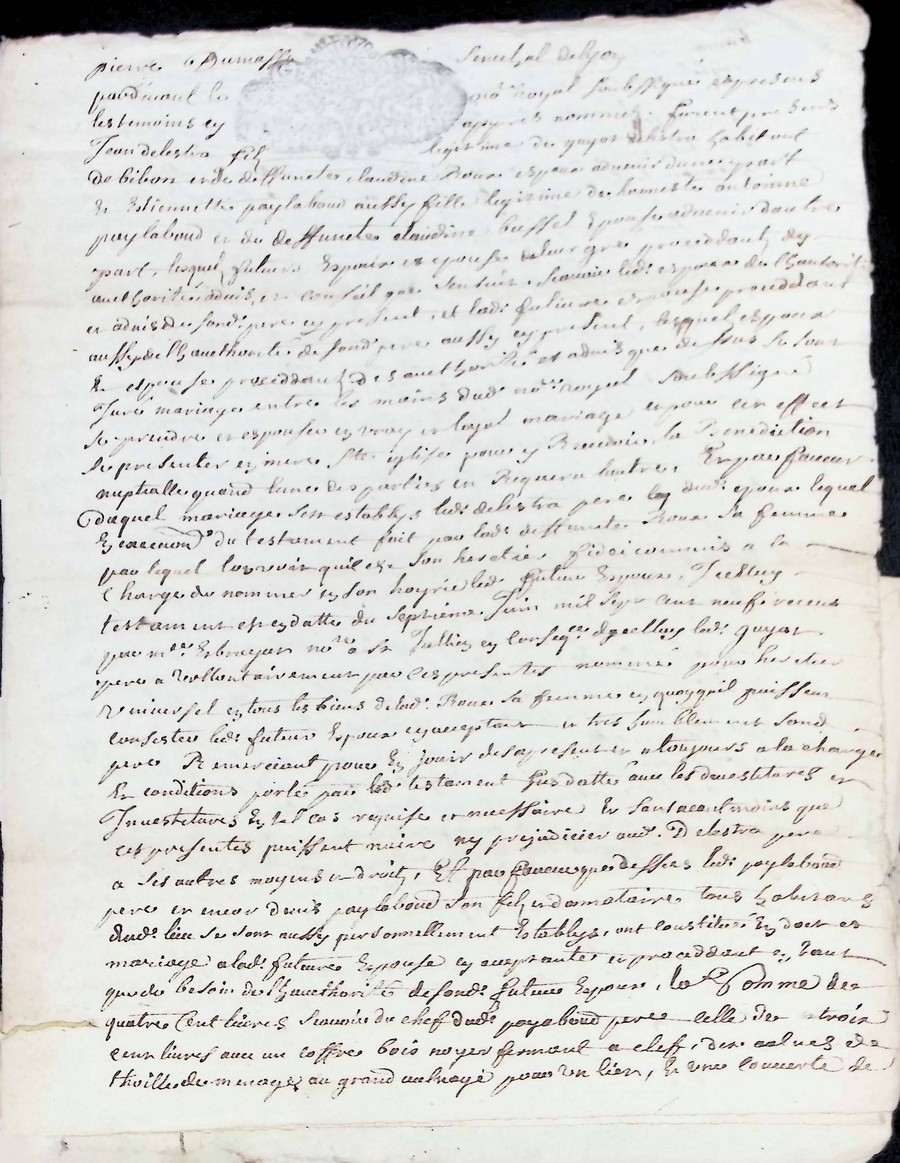 pierre Dumas Senechal de Lyon
pardevant le no.re royal soubssigné et presens
les temoins cy appres nommes, furent presens
Jean delestra fils legitime de guyot delestra habitant
de bibon et de deffuncte claudine Roux espoux advenir dune part
Et Estiennette paylaboud aussy fille legitime de honneste antoinne
paylaboud et de deffuncte claudine bussel Epouse advenir dautre
part, lesquel futurs Espoux et epouse de leur gre proceddant des
authorités advis, et conseil que sensuit, scavoir led. espoux de lhautorité
et advis de sond. pere cy present, et lad. future espouse proceddant
aussy de lhauthorité de sond. pere aussy cy present, lesquel espoux
Et espouse proceddant des authorité et advis que dessus se sont
Juré mariage entre les mains dud. no.re royal soubssigné
se prendre et espouser en vray et loyal mariage et pour cet effect
se presenter en n.re s.te eglise pour y Recevoir la Benediction
nuptialle quand lune des parties en Requera lautre. Et par faveur
Duquel mariage sest establys led. delestra pere dud. epoux lequel
En execution du testament fait par lad. deffuncte Roux sa femme
par lequel lon voit quil est son heretier fideicommis a la
Charge de nommer en son hoyrie led. futur Espoux, Iceluy
testament est en datte du septieme Juin mil sept cent neuf receu
par m.re no.re a st Jullien en conseq.ce dycelluy led. guyot
pere a vollontairement par ces presentes nommé pour heretier
universel en tous les biens de lad. Roux sa femme en quoy quil puissent
consester led. futur Espoux cy acceptant et tres humblement sond.
pere Remerciant pour En jouir des apresent et a toujours a la charge
Et conditions porté par led. testament susdatté avec les devestitures et
Investitures En tel cas requise et necessaire Et sans neanmoins que
ces presentes puissent nuire ny prejudicier aud. Delestra pere
a ses autres moyens et droits, Et par faveur que dessus led. paylaboud
pere et denis paylaboud son fils et donnataire tous habitans
dud. lieu se sont aussy personnellement Establys, ont constitué En dot et
mariage a lad. future Espouse cy acceptante et proceddant en tant
que de besoin de lhauthorité de sond. futur Espoux, la somme de
quatre Cent livres scavoir du chef dud. paylaboud pere celle de trois
cent livres avec un coffre bois noyer fermant a clef, de
thoille de menage au grand aulnage pour un lien, Et une couverte de